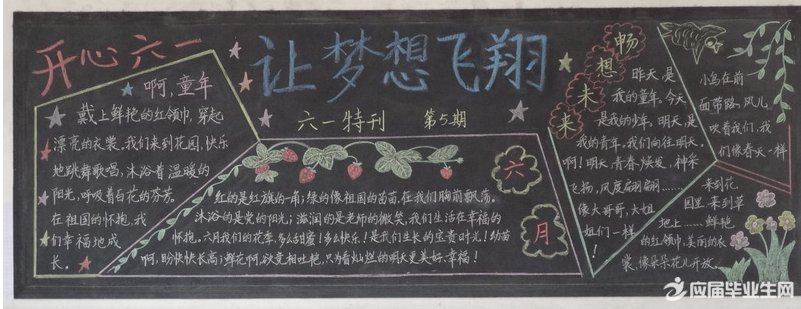 开心六一
让梦想飞翔
六一特刊 第5期
啊,童年
戴上鲜艳的红领巾,穿起
漂亮的衣裳。我们来到花园,快乐
地跳舞歌唱,沐浴着温暖的
阳光,呼吸着百花的芬芳。
在祖国的怀抱,我
们幸福地成
长。
六月
红的是红旗的一角;绿的像祖国的苗苗,在我们胸前飘荡。
沐浴的是党的阳光;滋润的是老师的微笑,我们生活在幸福的
怀抱。六月我们的花季,多么甜蜜!多么快乐!是我们生长的宝贵时光!幼苗
啊,盼快快长高;鲜花啊,欲竞相吐艳,只为着灿烂的明天更美好、幸福!
畅想未来
昨天,是
我的童年,今天
是我的少年,明天,是
我的青年,我们向往明天。
啊!明天,青春焕发,神采
飞扬,风度翩翩……
像大哥哥,大姐
姐们一样!
小鸟在前
面带路,风儿
吹着我们,我
们像春天一样
来到花
园里,来到草
地上……鲜艳
的红领巾,美丽的衣
裳,像朵朵花儿开放。
应届毕业生网